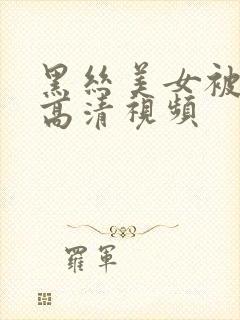 黑絲美女被
高清視頻
羅軍